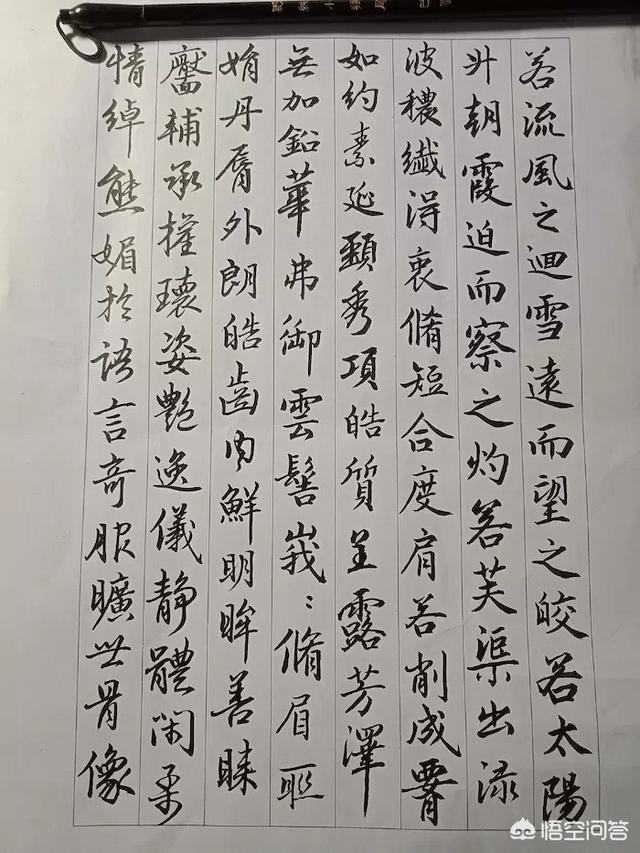 若流風之迴雪遠而望之皎若太陽
升朝霞迫而察之灼若芙渠出淥
波穠纖得衷脩短合度肩若削成腰
如約素延頸秀項皓質呈露芳澤
無加鉛華弗御雲髻峩:脩眉聯
娟丹脣外朗皓齒内鮮明眸善睞
靨輔承權瓌姿艷逸儀靜體閑柔
情綽態媚於語言奇服曠世骨像
悟空问答